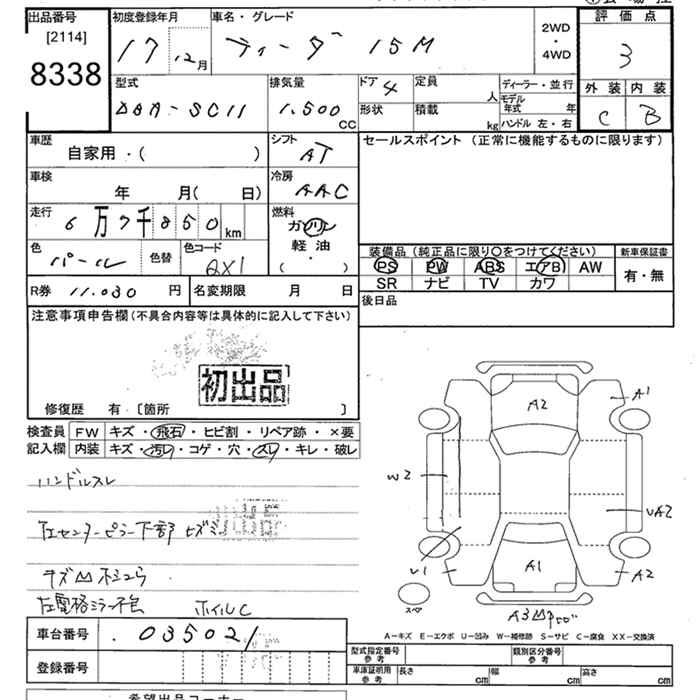 出品番号 初度登録年月 車名・グレード 2WD・4WD 評価点
[2114]
8338 17 12月 ティーダ 15M 3
型式 排気量 ドア 4 定員 人 ディーラー・並行 外装 内装
DBA-SC11 1.500 CC 形状 積載 kg モデル年式 年 ハンドル 左・右 C B
車歴 自家用・( ) シフト AT セールスポイント (正常に機能するものに限ります)
車検 年 月( 日) 冷房 AAC
走行 6万7千850km 燃料 ガソリン 軽油 ・( )
色 パール 色替 色コード QX1
装備品 (純正品に限り〇をつけてください) 新車保証書
PS PW ABS エアB AW 有・無
SR ナビ TV カワ
R券 11.030 円 名変期限 月 日 後日品
注意事項申告欄 (不具合内容等は具体的に記入して下さい)
初出品
修復歴 有 ・ 〔箇所 〕
検査員 FW キズ・飛石・ヒビ割・リペア跡・×要
記入欄 内装 キズ・汚レ・コゲ・穴・スレ・キレ・破レ
ハンドルスレ
右センターピラー下部 ヒズミ
左電格ミラー不良 ホイルC
A2 A1
W2 UA2
U1 A1 A2
スペア
A-キズ E-エクボ U-凹み W-補修跡 S-サビ C-腐食 XX-交換済
車台番号 035021
登録番号
型式指定番号 参考 類別区分番号 参考
車庫証明用 参考 長さ cm 幅 cm 高さ cm
希望出品コーナー